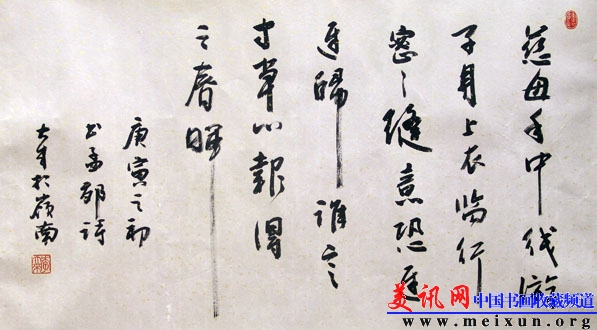 慈母手中线遊
子身上衣临行
密々缝意恐遲
遲歸誰言
寸草心報得
三春暉
庚寅之初
书孟郊詩
於嶺南
美讯网 中国书画收藏频道
www.meixun.org